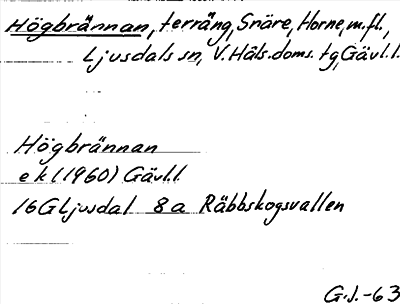 Högbrännan, terräng, Snäre, Horne, m.fl.,
Ljusdals sn, V. Häls. doms. tg, Gävl. l.
Högbrännan
e k (1960) Gävl.l
16G Ljusdal 8 a Räbbskogsvallen
G.J.-63